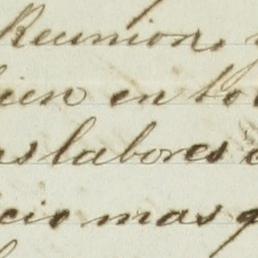 Reunion, y
bien en to
as labores d
cio mas q